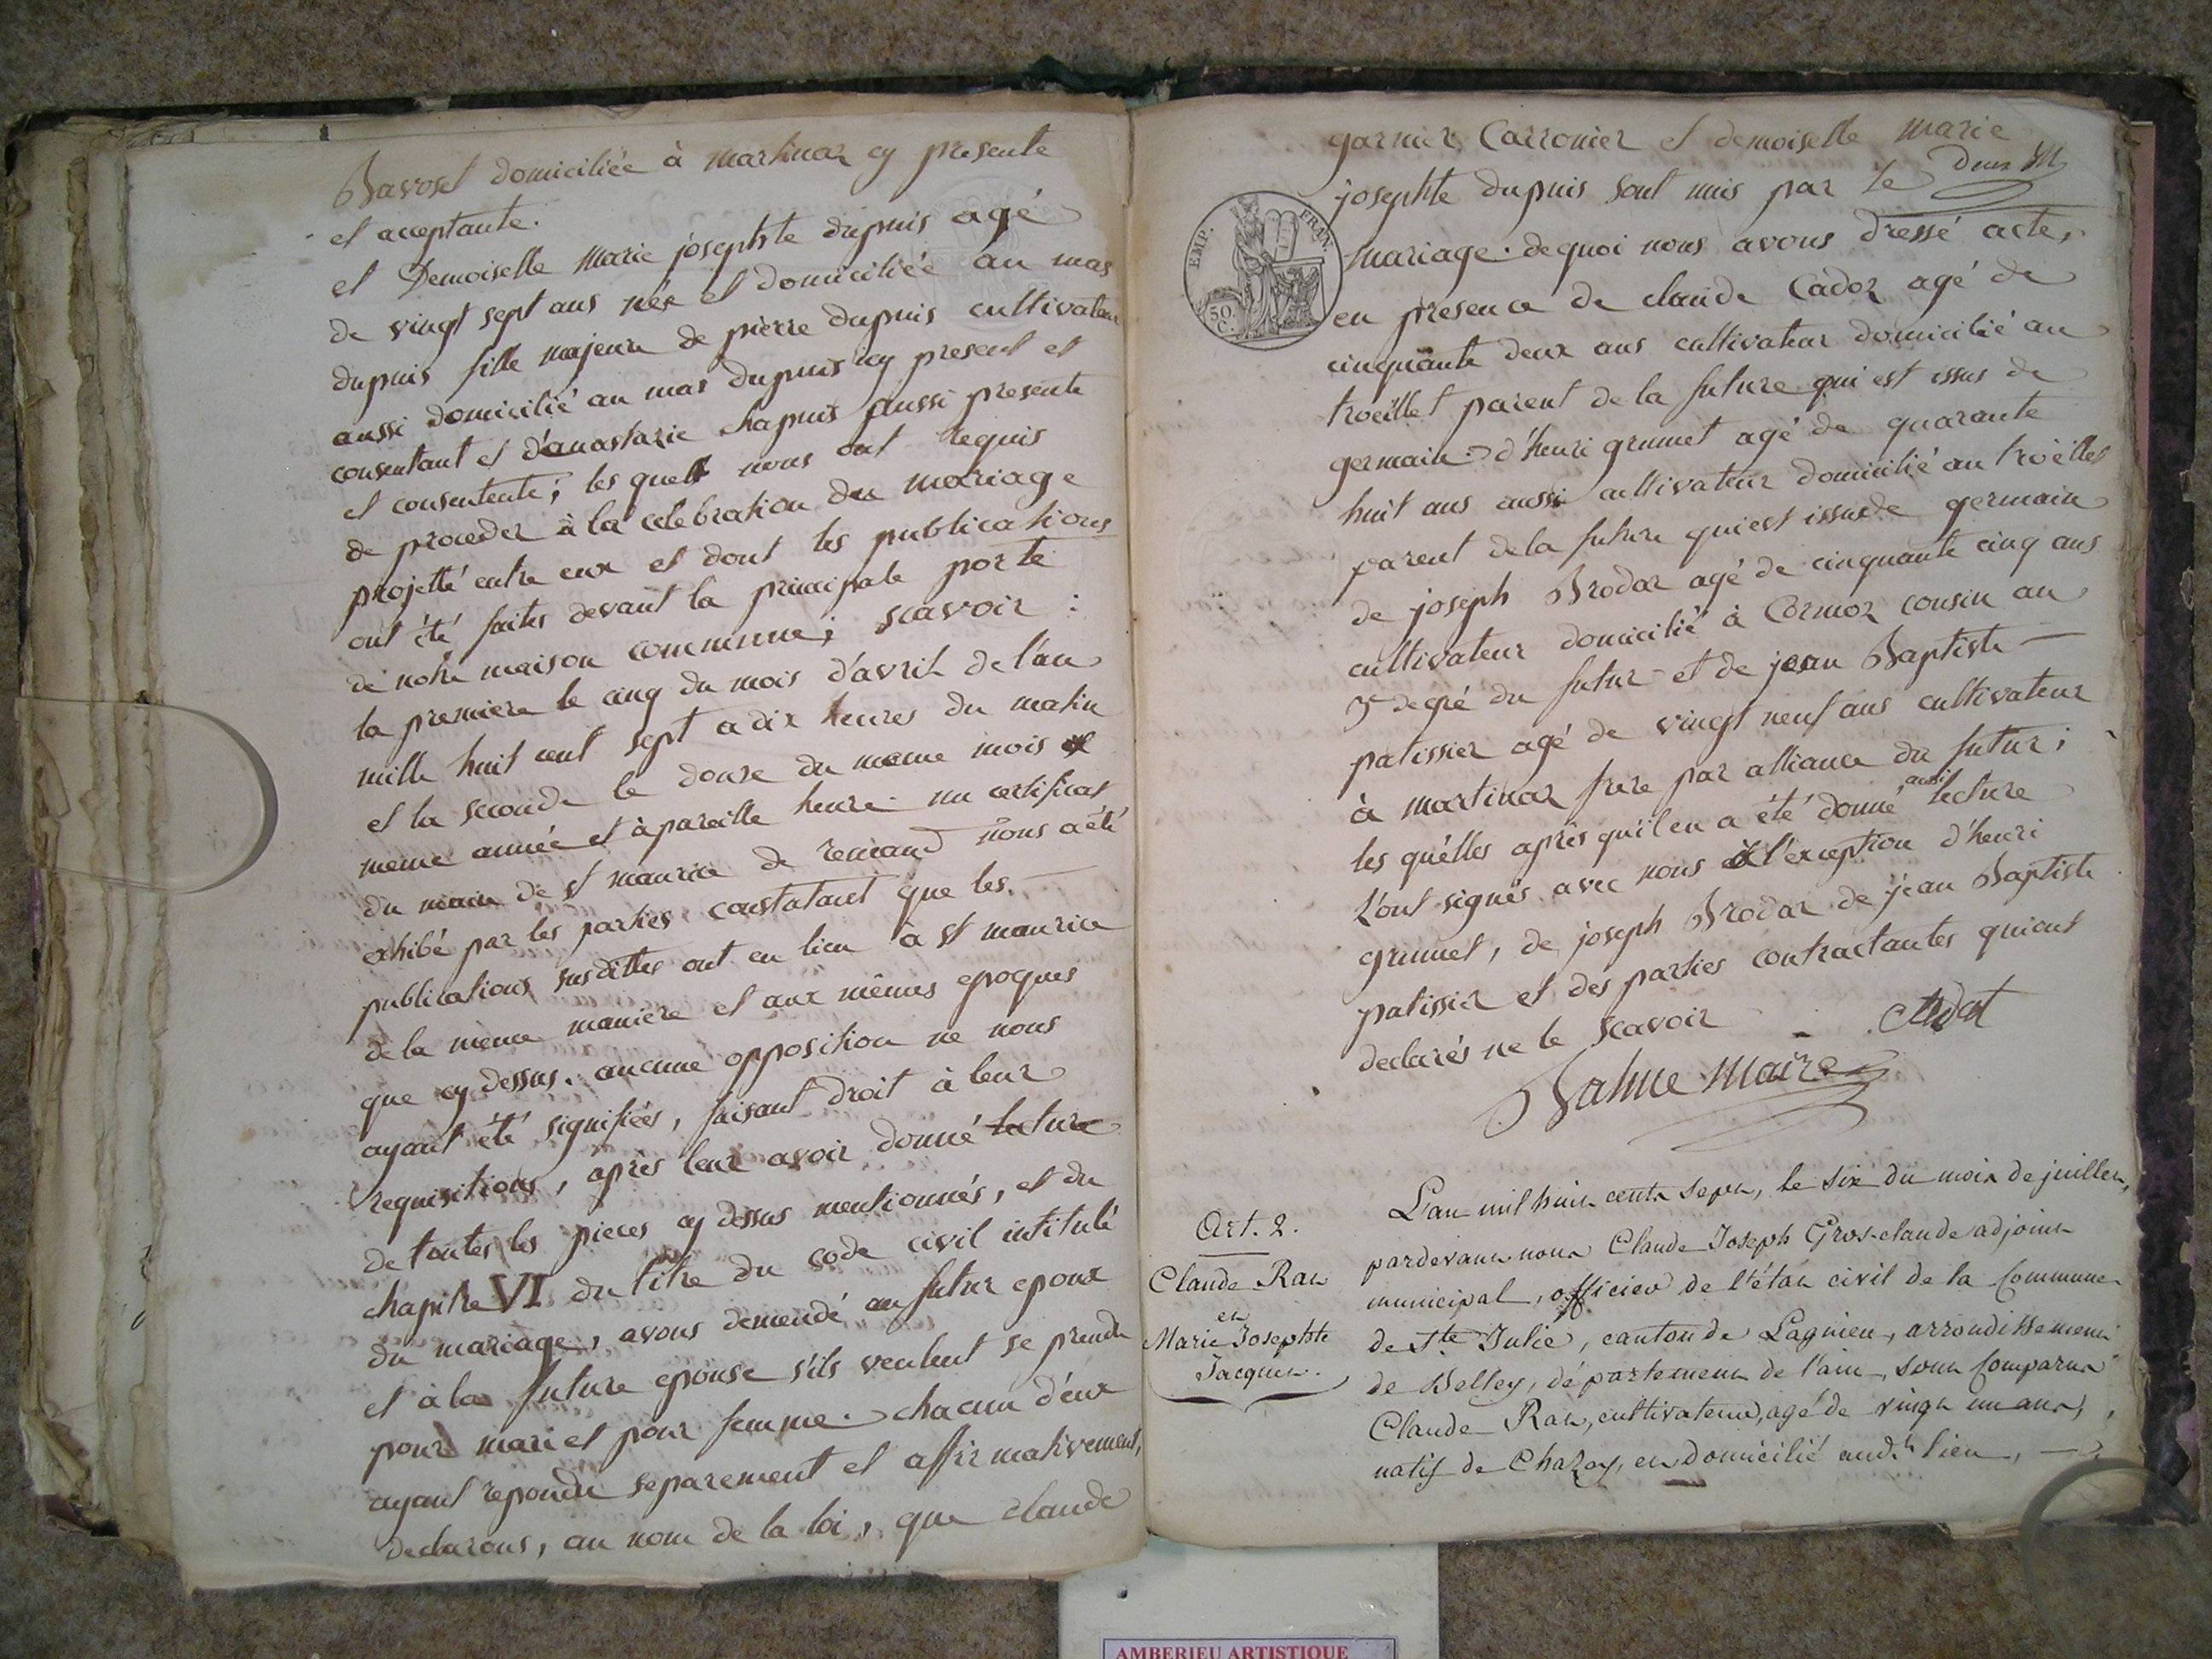 Bavoset domiciliée à martinaz cy presente
et acceptante.
et Demoiselle Marie josephte dupuis agé
de vingt sept ans née et domiciliée au mas
dupuis fille majeure de pierre dupuis cultivateur
aussi domicilié au mas dupuis icy present et
consentant et d'anastazie chapuis aussi presente
et consentente; les quels nous ont requis
de proceder à la celebration du mariage
projetté entre eux et dont les publications
ont été faites devant la principale porte
de notre maison commune; scavoir :
la premiere le cinq du mois d'avril de l'an
mille huit cent sept a dix heures du matin
et la seconde le douze du meme mois
meme année et à pareille heure. un certificat
du maire de st maurice de remand nous a été
exhibé par les parties constatant que les.
publications susdittes ont eu lieu à st maurice
de la meme maniere et aux mêmes epoques
que cy dessus. aucune opposition ne nous
ayant été signifiées, faisant droit à leur
requisitions, après leur avoir donné lecture
de toutes les pieces cy dessus mentionnés, et du
chapitre VI du titre du code civil intitulé
du mariage, avons demendé au futur epoux
et à la future epouse s'ils veulent se prendre
pour mari et pour femme. chacun d'eux
ayant repondu separement et affirmativement,
declarons, au nom de la loi, que claude
garnier Carronier et demoiselle marie
josephte dupuis sont unis par le
EMP. FRAN.
50. C.
mariage. de quoi nous avons dressé acte,
en presence de claude Cadoz agé de
cinquante deux ans cultivateur domicilié au
troëillet parent de la future qui est issus de
germain. d'henri grumet agé de quarante
huit ans aussi cultivateur domicilié au troëillet
parent de la future qui est issus de germain
de joseph Brodaz agé de cinquante cinq ans
cultivateur domicilié à Cormoz cousin au
3e degré du futur et de jean Baptiste
patissier agé de vingt neuf ans cultivateur
à martinaz frere par alliance du futur;
les quélles après qu'il en a été donné aussi lecture
l'ont signés avec nous à l'exception d'henri
grumet, de joseph Brodaz de jean Baptiste
patissier et des parties contractantes qui ont
declarés ne le scavoir
maire
Art. 2.
Claude Rat
et
Marie Josephte
Jacquet.
L'an mil huit cents sept, le six du mois de juillet,
pardevant nous Claude Joseph Gros-claude adjoint
municipal, officier de l'état civil de la Commune
de Ste. Julie, canton de Lagnieu, arrondissement
de Belley, département de l'ain, sont Comparus
Claude Rat, cultivateur, agé de vingt un ans,
natif de Chazey, et domicilié aud.t lieu,
AMBERIEU ARTISTIQUE